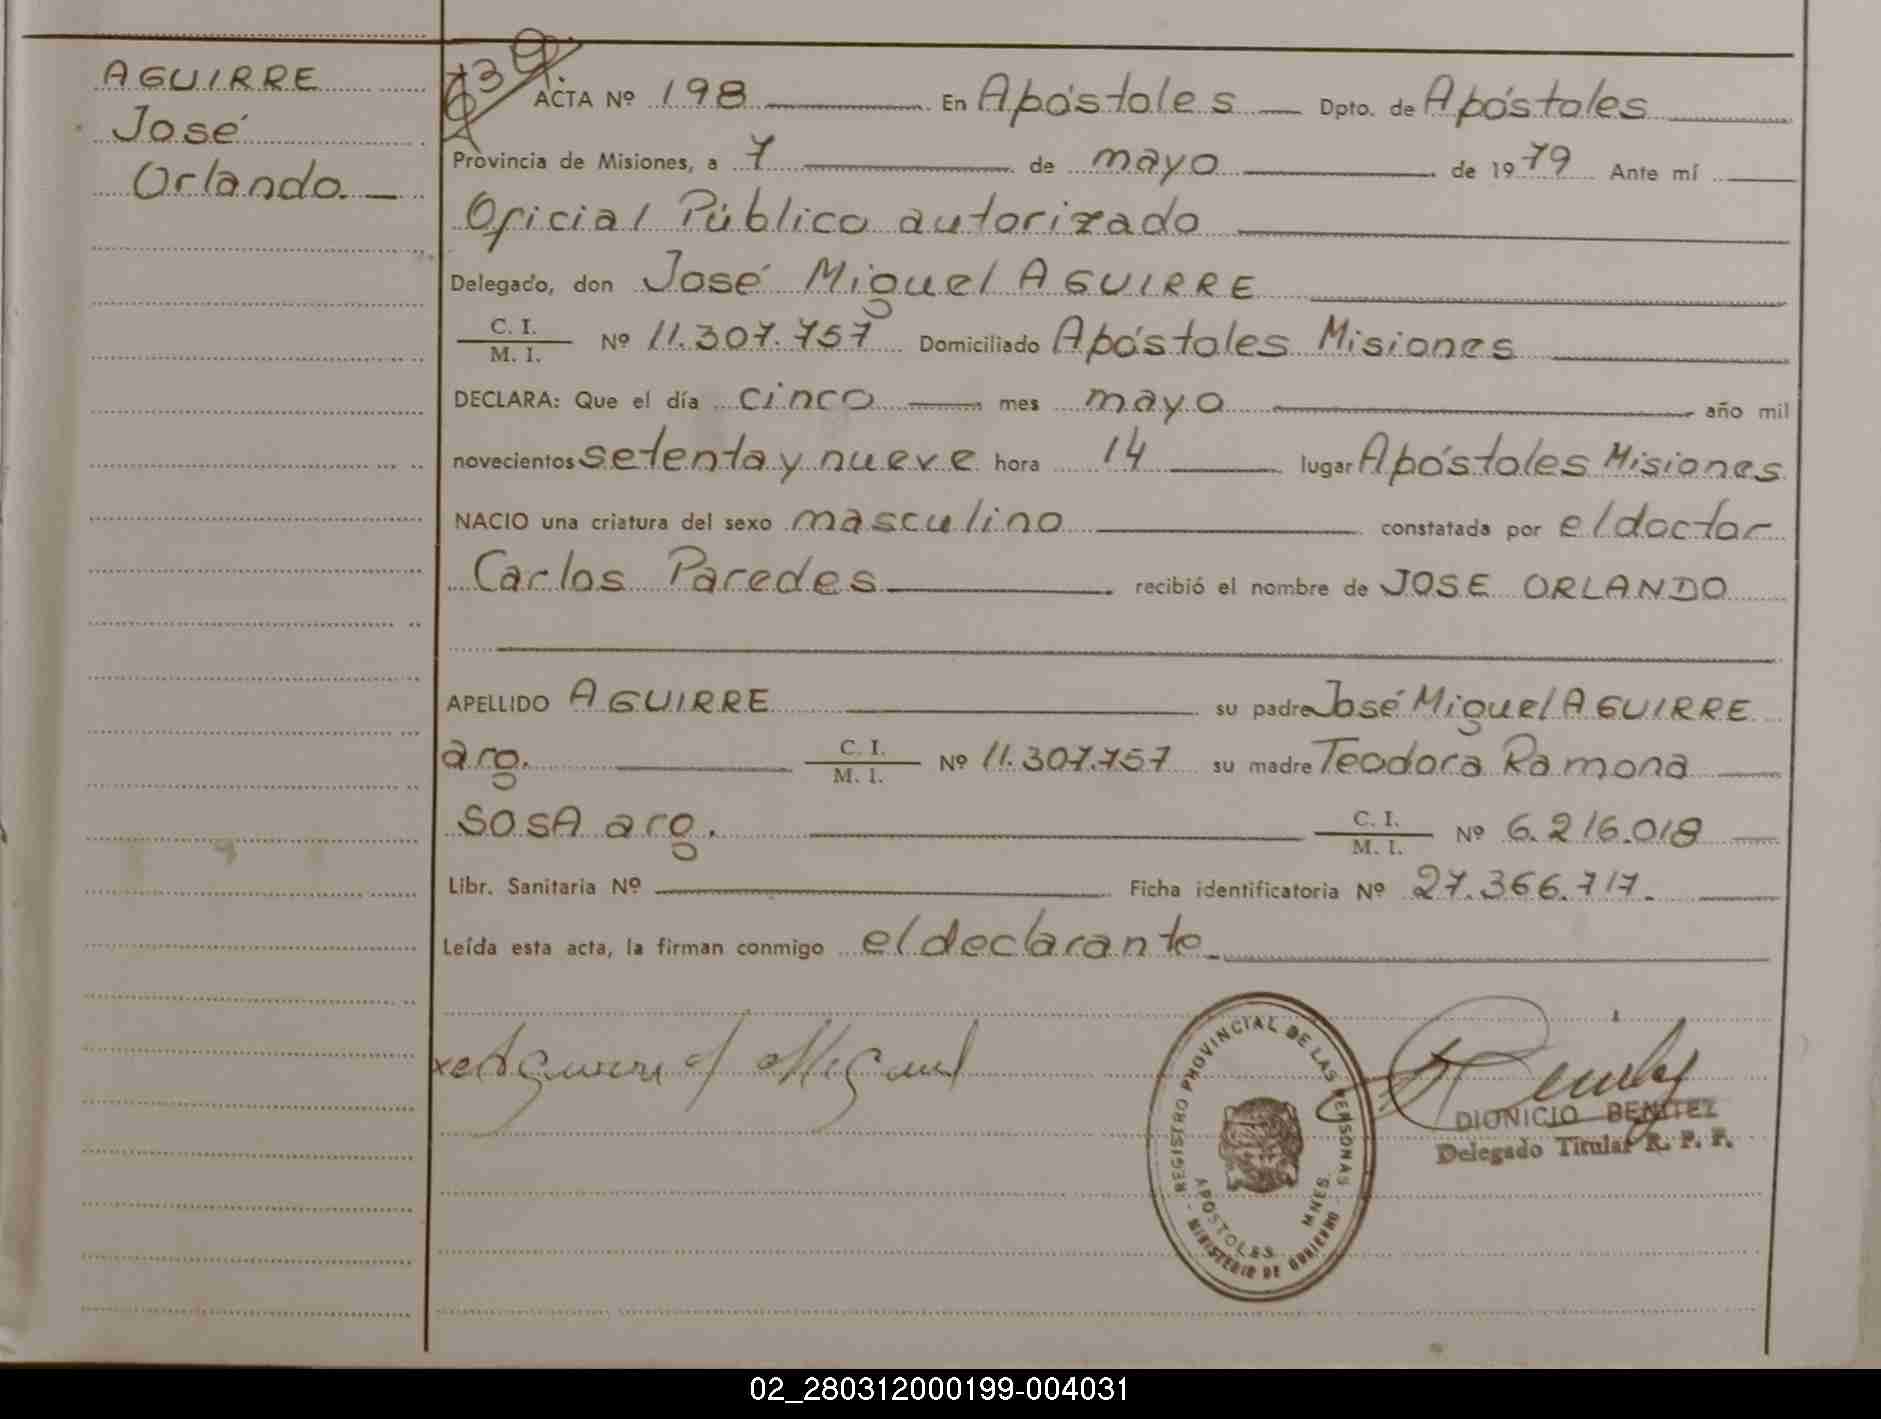 AGUIRRE
José
Orlando.
ACTA Nº 198 En Apóstoles Dpto. de Apóstoles
Provincia de Misiones, a 7 de mayo de 1979 Ante mí
Oficial Público autorizado
Delegado, don José Miguel AGUIRRE
C. I.
M. I. Nº 11.307.757 Domiciliado Apóstoles Misiones
DECLARA: Que el día cinco mes mayo año mil
novecientos setenta y nueve hora 14 lugar Apóstoles Misiones
NACIO una criatura del sexo masculino constatada por el doctor
Carlos Paredes recibió el nombre de JOSE ORLANDO
APELLIDO AGUIRRE su padre José Miguel AGUIRRE
arg. C. I.
M. I. Nº 11.307.757 su madre Teodora Ramona
SOSA arg. C. I.
M. I. Nº 6.216.018
Libr. Sanitaria Nº Ficha identificatoria Nº 27.366.717.
Leída esta acta, la firman conmigo el declarante.
REGISTRO PROVINCIAL DE LAS PERSONAS
APOSTOLES MNES.
MINISTERIO DE GOBIERNO
DIONICIO BENITEZ
Delegado Titular R. P. P.
02_280312000199-004031